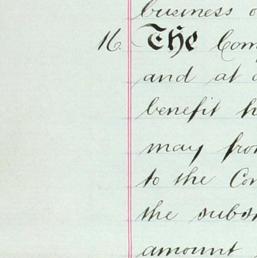 business
16 The Com
and at
benefit
may
to the
the
amount